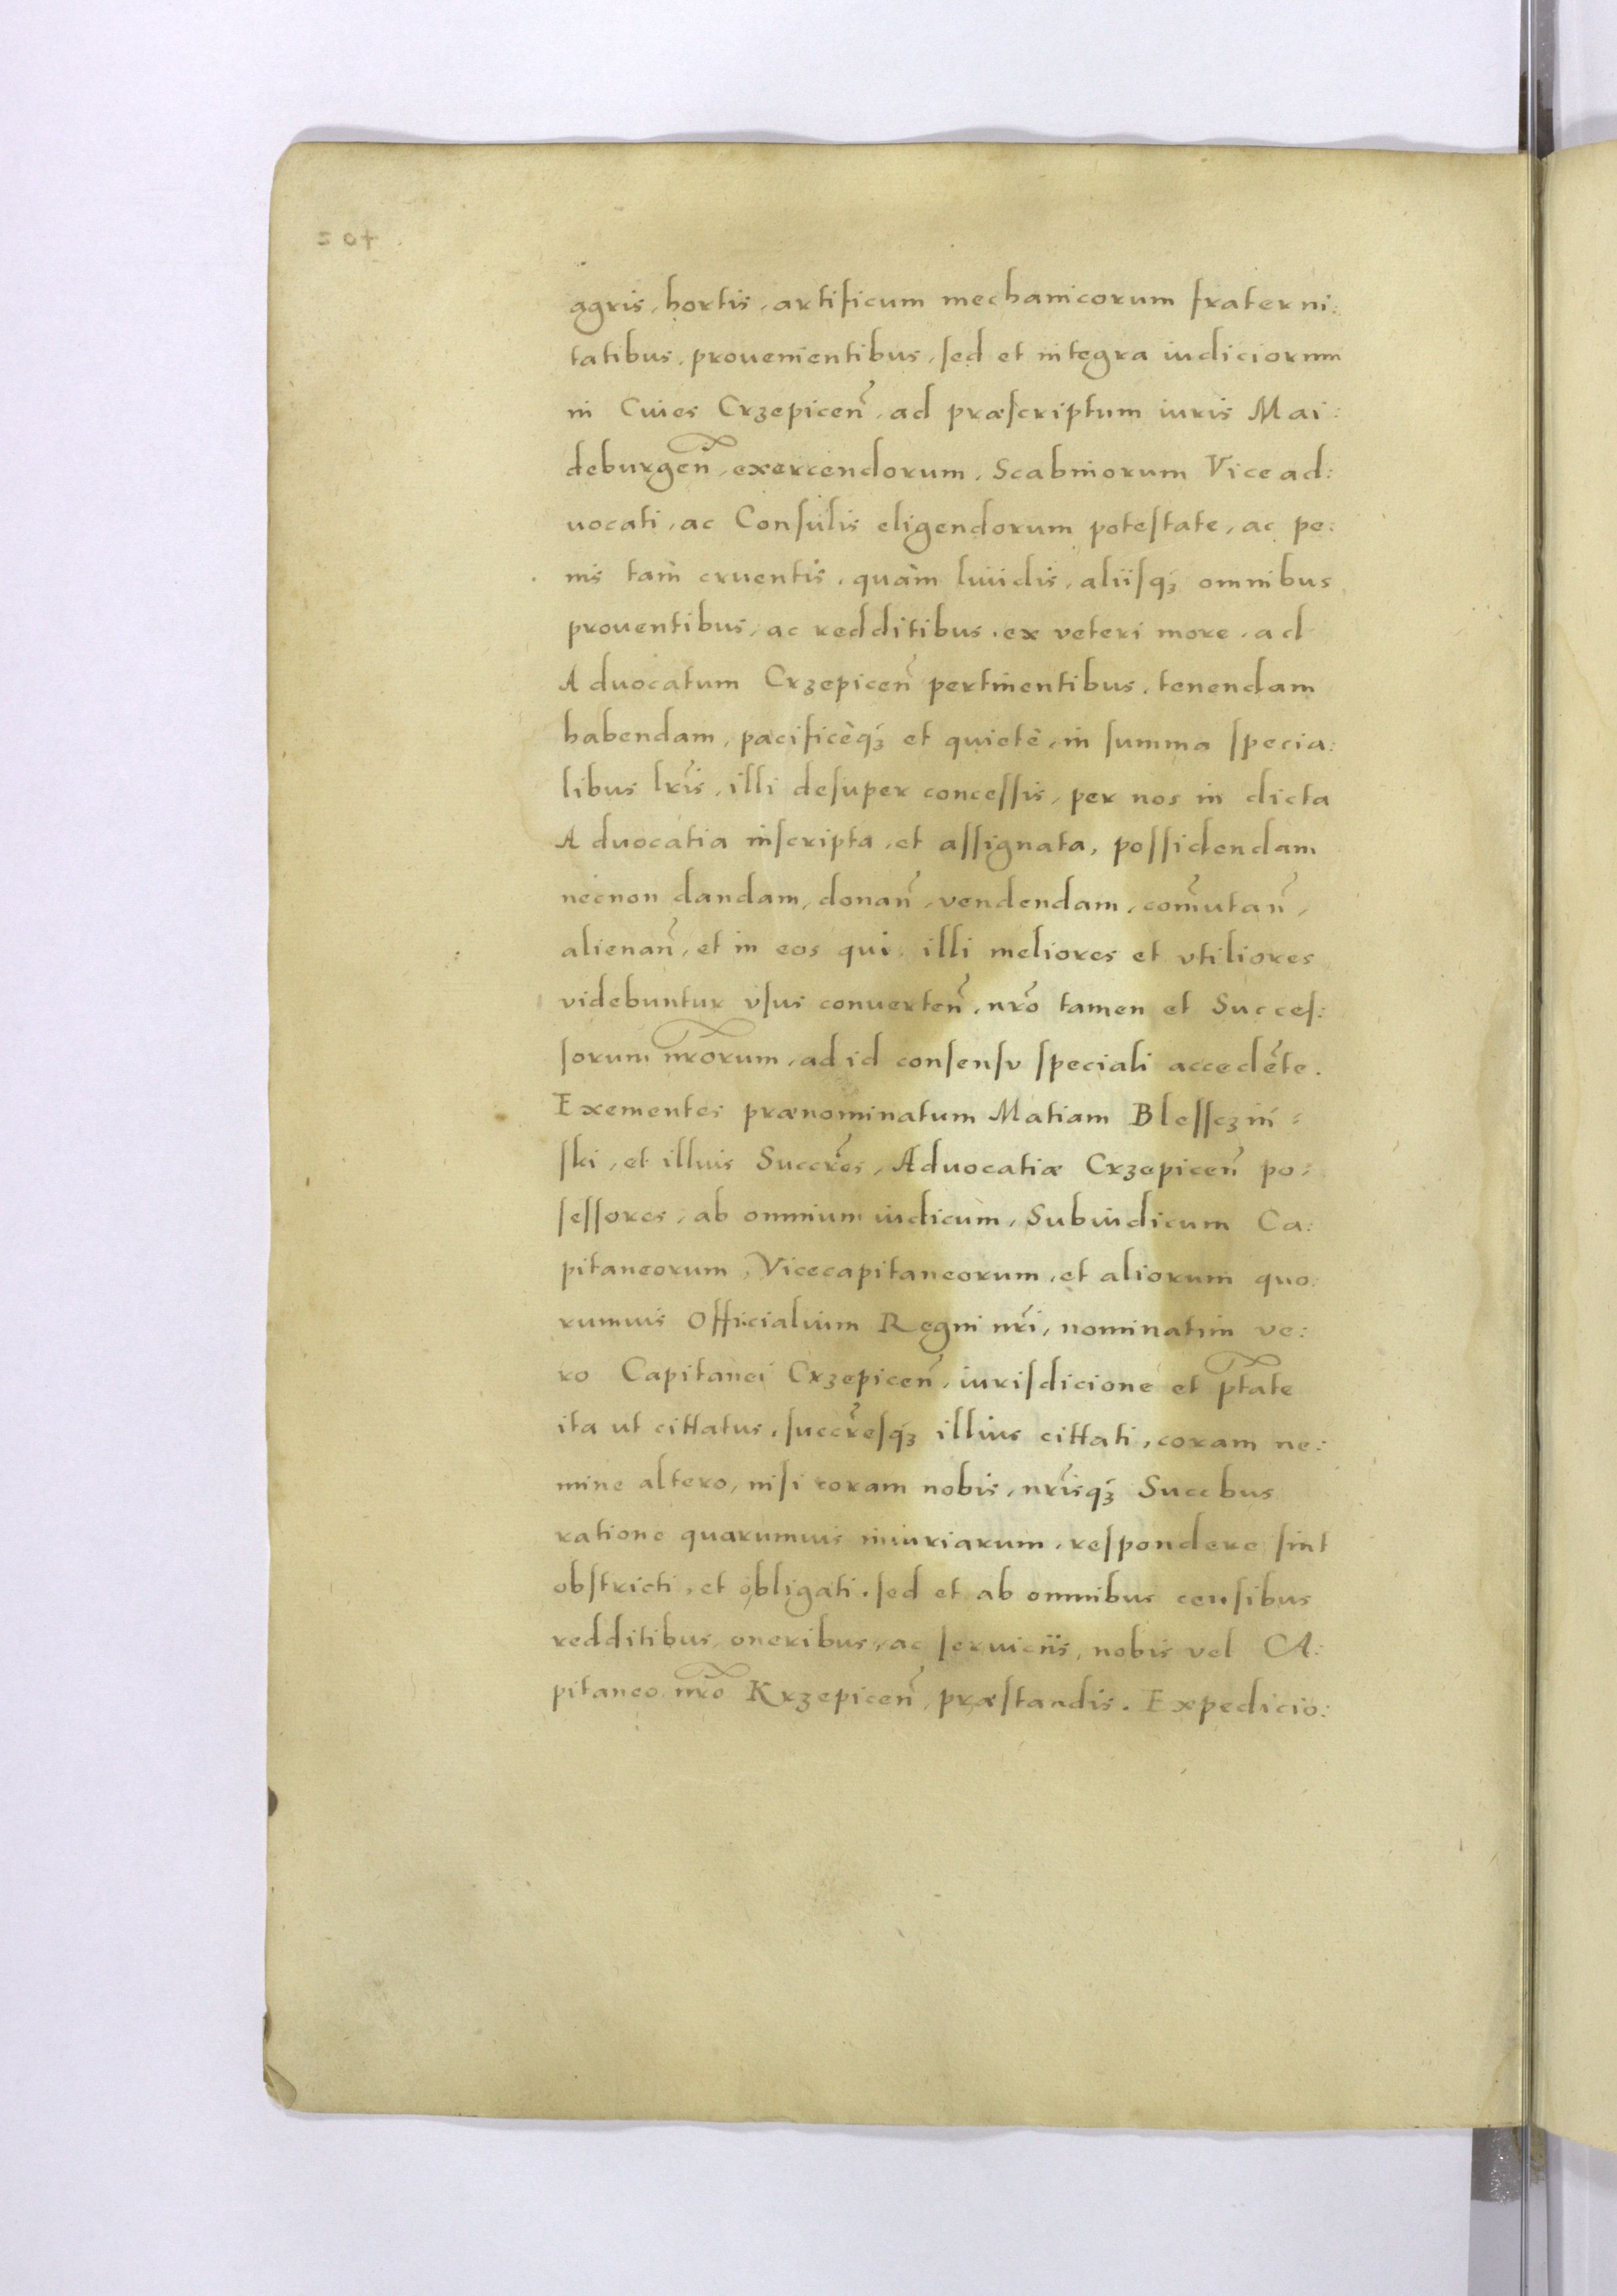 agris, hortis, artificum mechanicorum fraterni:
tatibus, prouenientibus, ſed et integra iudiciorum
in Ciues Crzepiceñ, ad præſcriptum iuris Mai:
deburgeñ, exercendorum, Scabinorum Vicead:
uocati, ac Conſulis eligendorum poteſtate, ac pe:
nis tam cruentis, quàm liuidis, aliiſqȝ omnibus
prouentibus, ac redditibus, ex veteri more, ad
Aduocatum Crzepiceñ pertinentibus, tenendam
habendam, pacificèqȝ et quietè, in ſumma ſpecia:
libus lr̃is, illi deſuper conceſſis, per nos in dicta
Aduocatia inſcripta, et aſſignata, poſſidendam
necnon dandam, donañ, vendendam, com̃utañ,
alienañ, et in eos qui illi meliores et vtiliores
videbuntur vſus conuerteñ, nr̃o tamen et Succeſ:
ſorum nr̃orum, ad id conſenſu ſpeciali accedẽte.
Exementes prænominatum Matiam Bleſſczin:
ſki, et illius Succr̃es, Aduocatiæ Crzepiceñ po:
ſeſſores, ab omnium iudicum, Subiudicum Ca:
pitaneorum, Vicecapitaneorum, et aliorum quo:
rumuis Officialium Regni nr̃i, nominatim ve:
ro Capitanei Crzepiceñ, iuriſdicione et ptãte
ita ut cittatus, ſuccr̃eſqȝ illius cittati, coram ne:
mine altero, niſi coram nobis, nr̃isqȝ Succbus
ratione quarumuis iniuriarum, reſpondere ſint
obſtricti, et obligati, ſed et ab omnibus cenſibus
redditibus, oneribus, ac ſeruiciis, nobis vel CA:
pitaneo nr̃o Krzepiceñ, præſtandis. Expedicio: